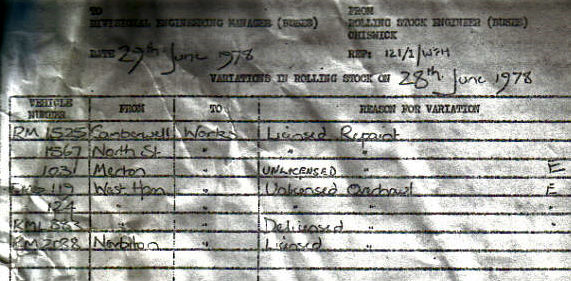 TO FROM
DIVISIONAL ENGINEERING MANAGER (BUSES) ROLLING STOCK ENGINEER (BUSES)
CHISWICK
DATE 29th June 1978 REF: 121/1/WPH
VARIATIONS IN ROLLING STOCK ON 28th June 1978
VEHICLE NUMBER FROM TO REASON FOR VARIATION
RM 1525 Camberwell Works Licensed Repaint
1567 North St. " " "
1031 Merton " UNLICENSED " E
119 West Ham " Unlicensed Overhaul E
124 " " " " "
RML 883 " " Delicensed " "
RM 2038 Norbiton " Licensed "